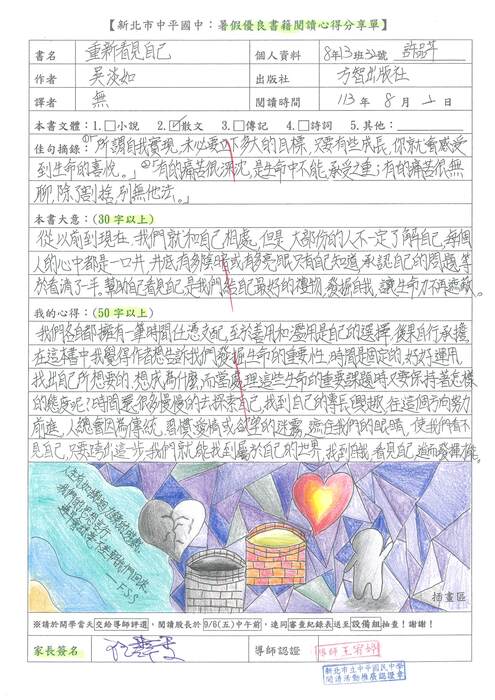 【新北市中平國中：暑假優良書籍閱讀心得分享單】
書名 重新看見自己 個人資料 8年13班32號 許品芊
作者 吳淡如 出版社 方智出版社
譯者 無 閱讀時間 113年8月1日
本書文體：1.□小說 2.☑散文 3.□傳記 4.□詩詞 5.其他：
佳句摘錄：①「所謂自我實現，未必要 多大的目標，只要有些成長，你就會感受
到生命的喜悅。」②「有的痛苦很深沈，是生命中不能承受之重；有的痛苦很無
聊，除了割捨，別無他法。」
本書大意：(30字以上)
從以前到現在，我們就和自己相處，但是大部份的人不一定了解自己，每個
人的心中都是一口井，井底有多陰暗或有多亮眼只有自己知道，承認自己的問題，等
於看清了一手。幫助自己看見自己，是我們給自己最好的禮物，發掘自我，讓生命力不再遮蔽。
我的心得：(50字以上)
我們各自都擁有一筆時間任憑支配，至於善用和濫用是自己的選擇，後果自行承擔，
在這本書中我覺得作者想告訴我們發掘生命的重要性，時間是固定的，好好運用
找出自己所想要的、想成為什麼，而當處理這些生命的重要課題時又要保持著怎樣
的態度呢？時間還很多慢慢的去探索自己，找到自己的專長、興趣，往這個方向努力
前進，人總會因為傳統、習慣、愛情或慾望的迷霧，遮住我們的眼睛，使我們看不
見自己，只要踏出這步，我們就能找到屬於自己的世界，找到自我，看見自己，進而發揮才能。
人生有如
我們
F.S.S
插畫區
※請於開學當天交給導師評選，閱讀股長於9/6(五)中午前，連同審查紀錄表送至設備組抽查！謝謝！
家長簽名 導師認證 導師王宥婷
新北市立中平國民中學
閱讀活動推廣認證章